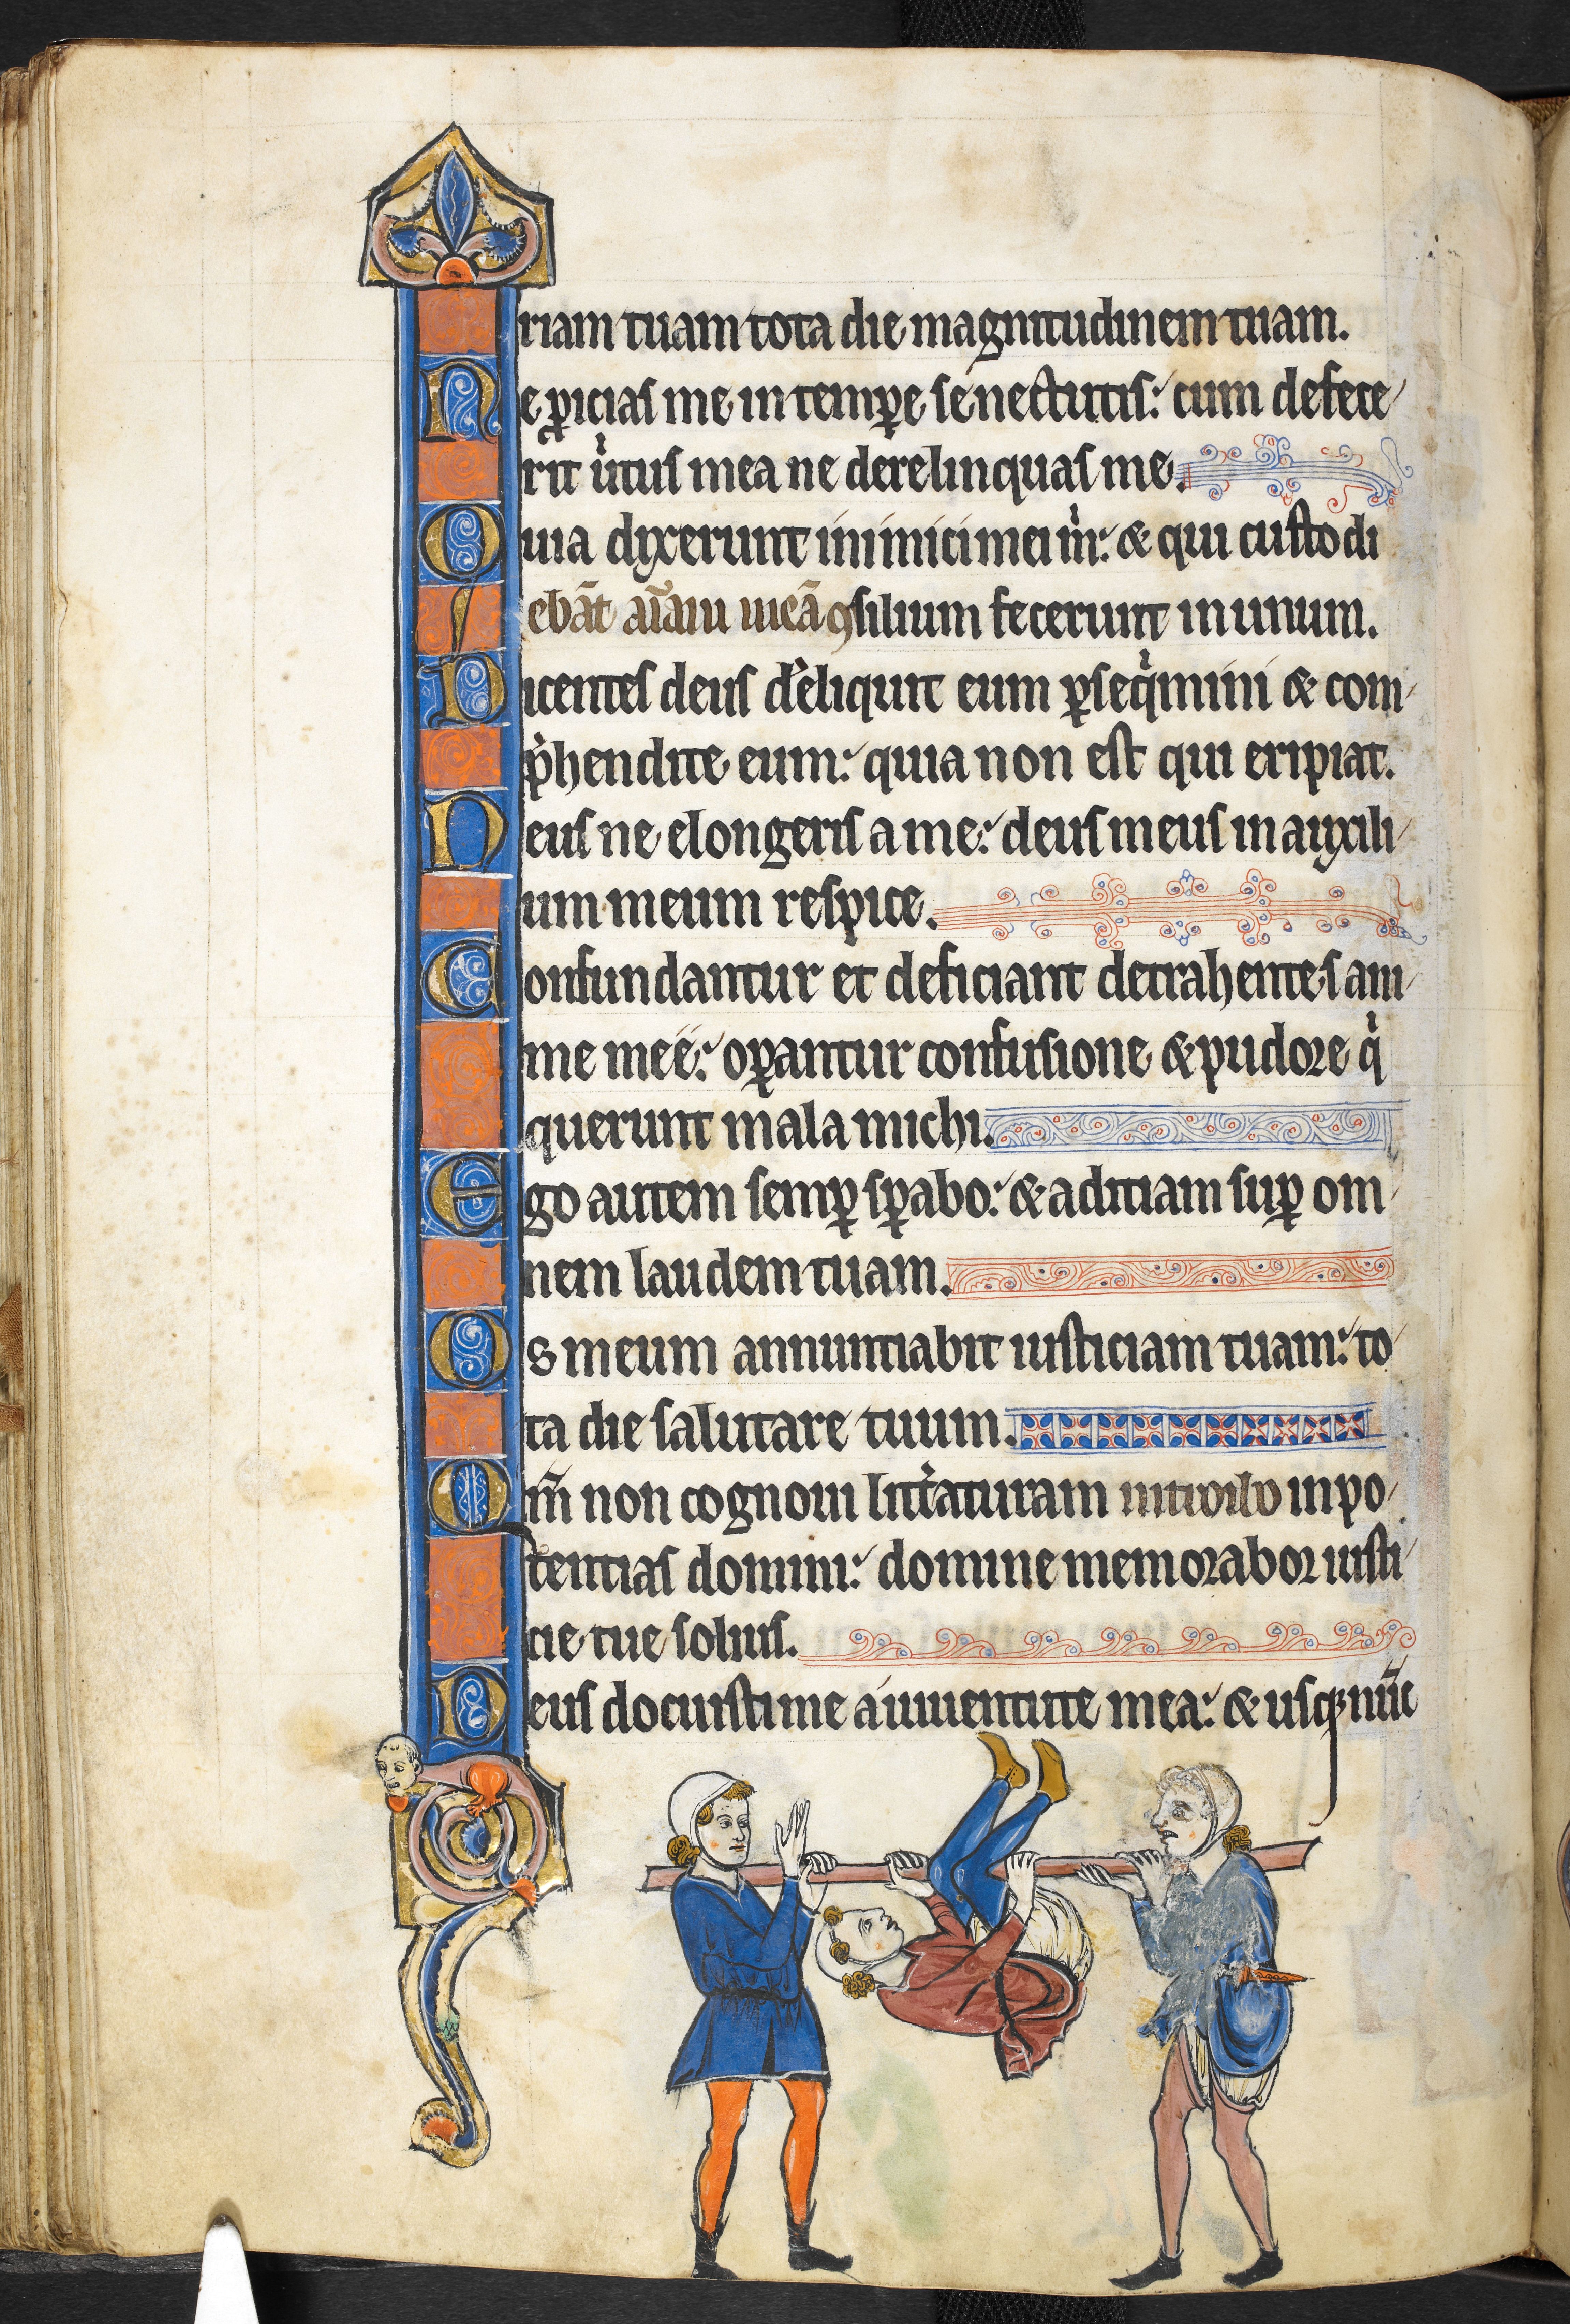 riam tuam tota die magnitudinem tuam.
Ne ꝓicias me in temꝑe senectutis: cum defece
rit ùtus mea ne derelinquas me.
Quia dixerunt inimici mei m̀: & qui custodi
ebāt aīam meā ꝯsilium fecerunt in unum.
Dicentes deus d'eliquit eum ꝑseq̀mini & com
p̀hendite eum: quia non est qui eripiat.
Deus ne elongeris a me: deus meus in auxili
um meum respice.
Confundantur et deficiant detrahentes ani
me mee: oꝑantur confusione & pudore q̀
querunt mala michi.
Ego autem semꝑ sꝑabo: & adiciam suꝑ om
nem laudem tuam.
Os meum annuntiabit iusticiam tuam: to
ta die salutare tuum.
Qm̄ non cognoui litt'aturam introibo in po
tentias domini: domine memorabor iusti
cie tue solius.
Deus docuisti me a iuuentute mea: & usqꝫ nūc